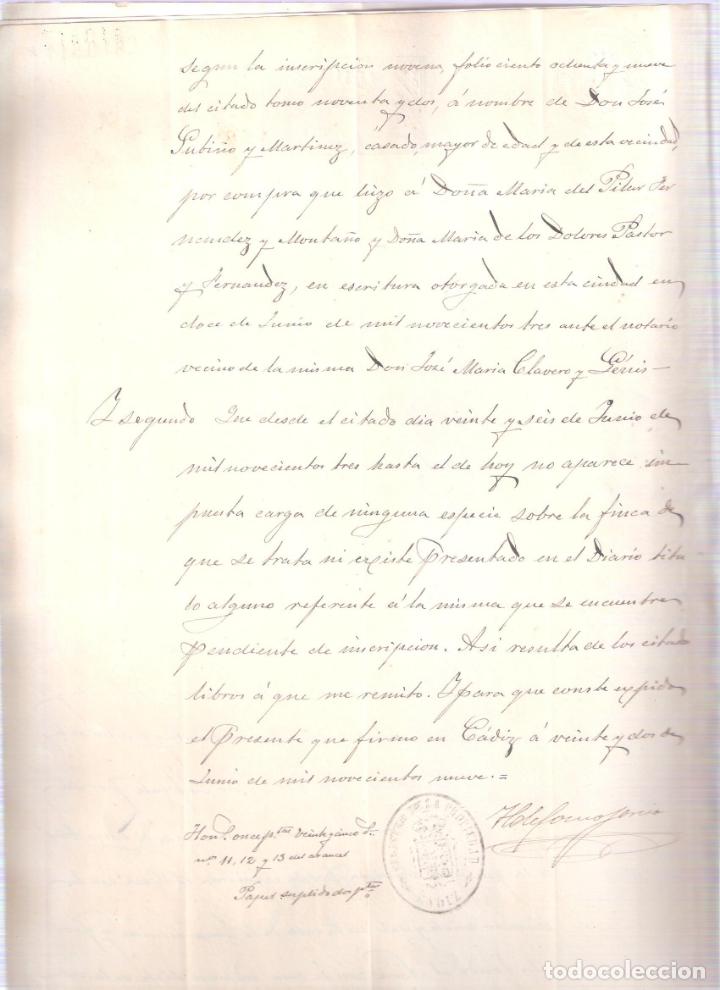 segun la inscripcion novena, folio ciento ochenta y nueve
del citado tomo noventa y dos, á nombre de Don José
Gubiño y Martinez, casado, mayor de edad y de esta vecindad,
por compra que hizo á Doña Maria del Pilar Fer
nandez y Montaño y Doña Maria de los Dolores Pastor
y Fernandez, en escritura otorgada en esta ciudad en
doce de Junio de mil novecientos tres ante el notario
vecino de la misma Don José Maria Clavero y Génis—
Y segundo Que desde el citado dia veinte y seis de Junio de
mil novecientos tres hasta el de hoy no aparece im
puesta carga de ninguna especie sobre la finca de
que se trata ni existe presentado en el Diario titu
lo alguno referente á la misma que se encuentre
pendiente de inscripcion. Asi resulta de los citados
libros á que me remito. Y para que conste expido
el presente que firmo en Cádiz á veinte y dos de
Junio de mil novecientos nueve.=
Hon. once ptas veinte y cinco
nos 11, 12 y 13 del arancel
Papel suplido dos ptas
REGISTRO DE LA PROPIEDAD
CADIZ
todocoleccion.net